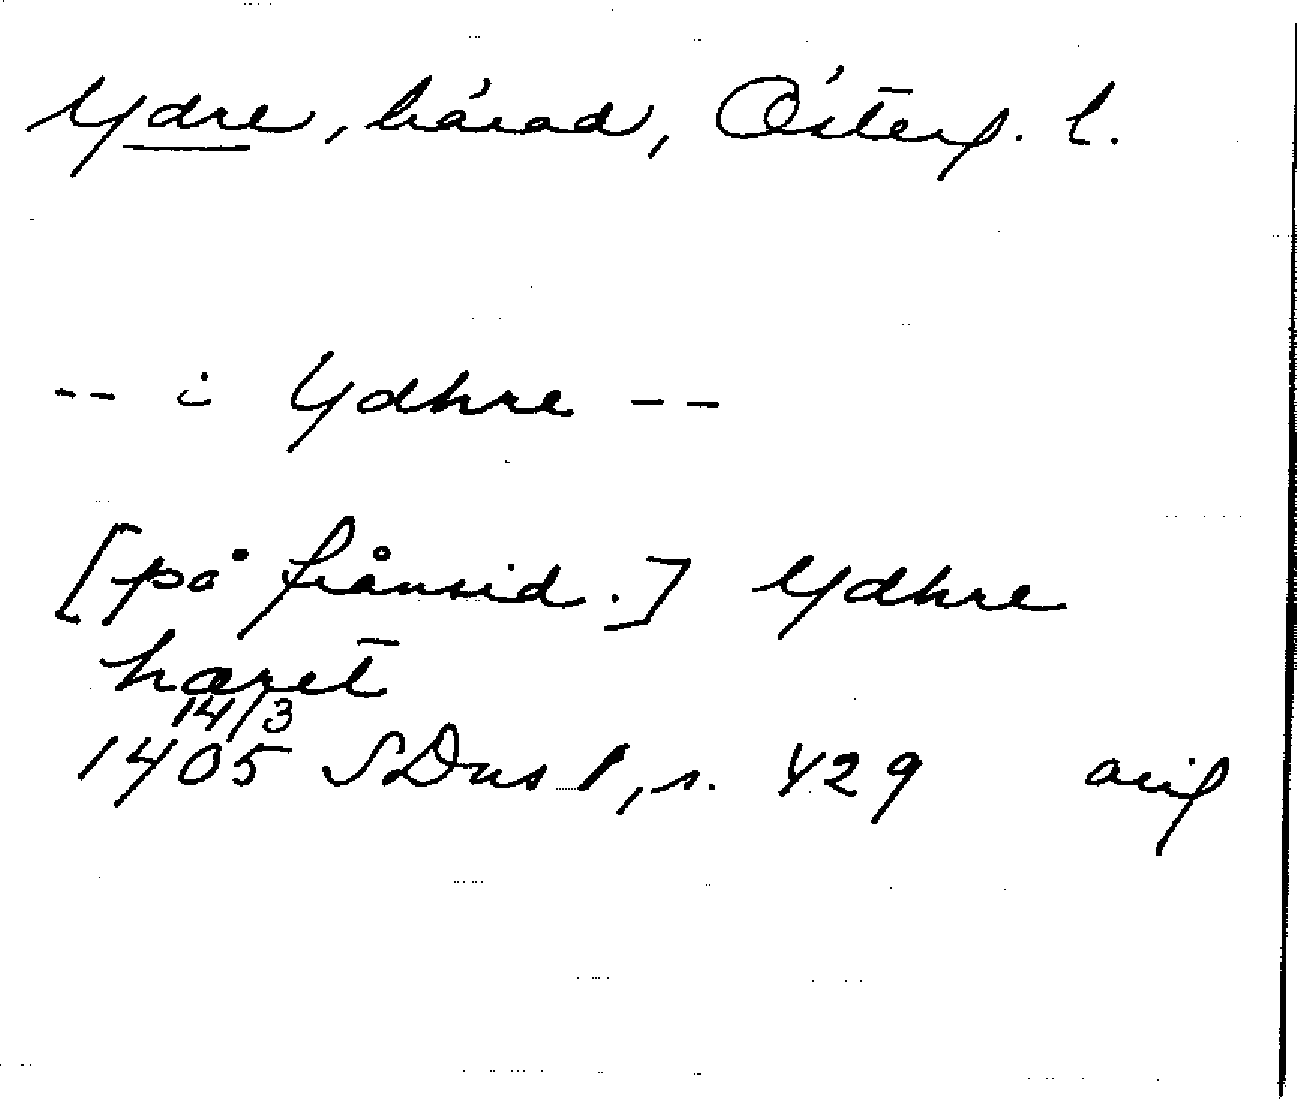 Ydre, härad, Österg. l.
-- i Ydhre --
[på frånsid.] Ydhre
hæret
14/3
1405 SDns 1, s. 429 avig